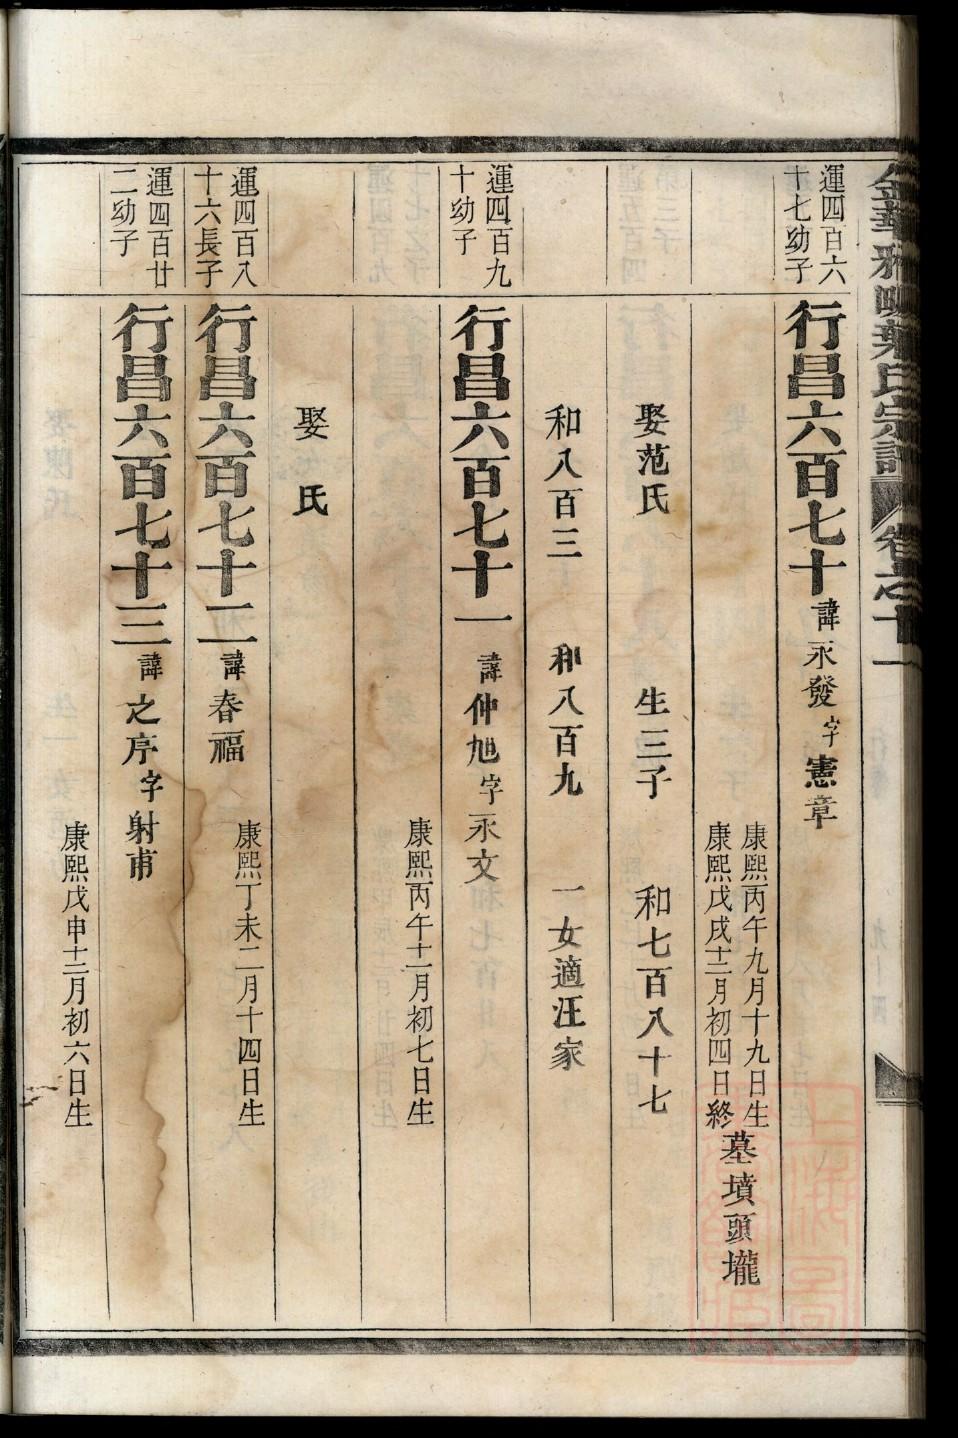 金華雅畈葉氏宗譜 卷之十一
運四百六
十七幼子
行昌六百七十 諱永發字憲章
康熙丙午九月十九日生
康熙戊戌十二月初四日終
墓墳頭壠
娶范氏 生三子 和七百八十七
和八百三 和八百九 一女適汪家
運四百九
十幼子
行昌六百七十一 諱仲旭字永文
康熙丙午十二月初七日生
娶 氏
運四百八
十六長子
行昌六百七十二 諱春福
康熙丁未二月十四日生
運四百廿
二幼子
行昌六百七十三 諱之序字射甫
康熙戊申十二月初六日生